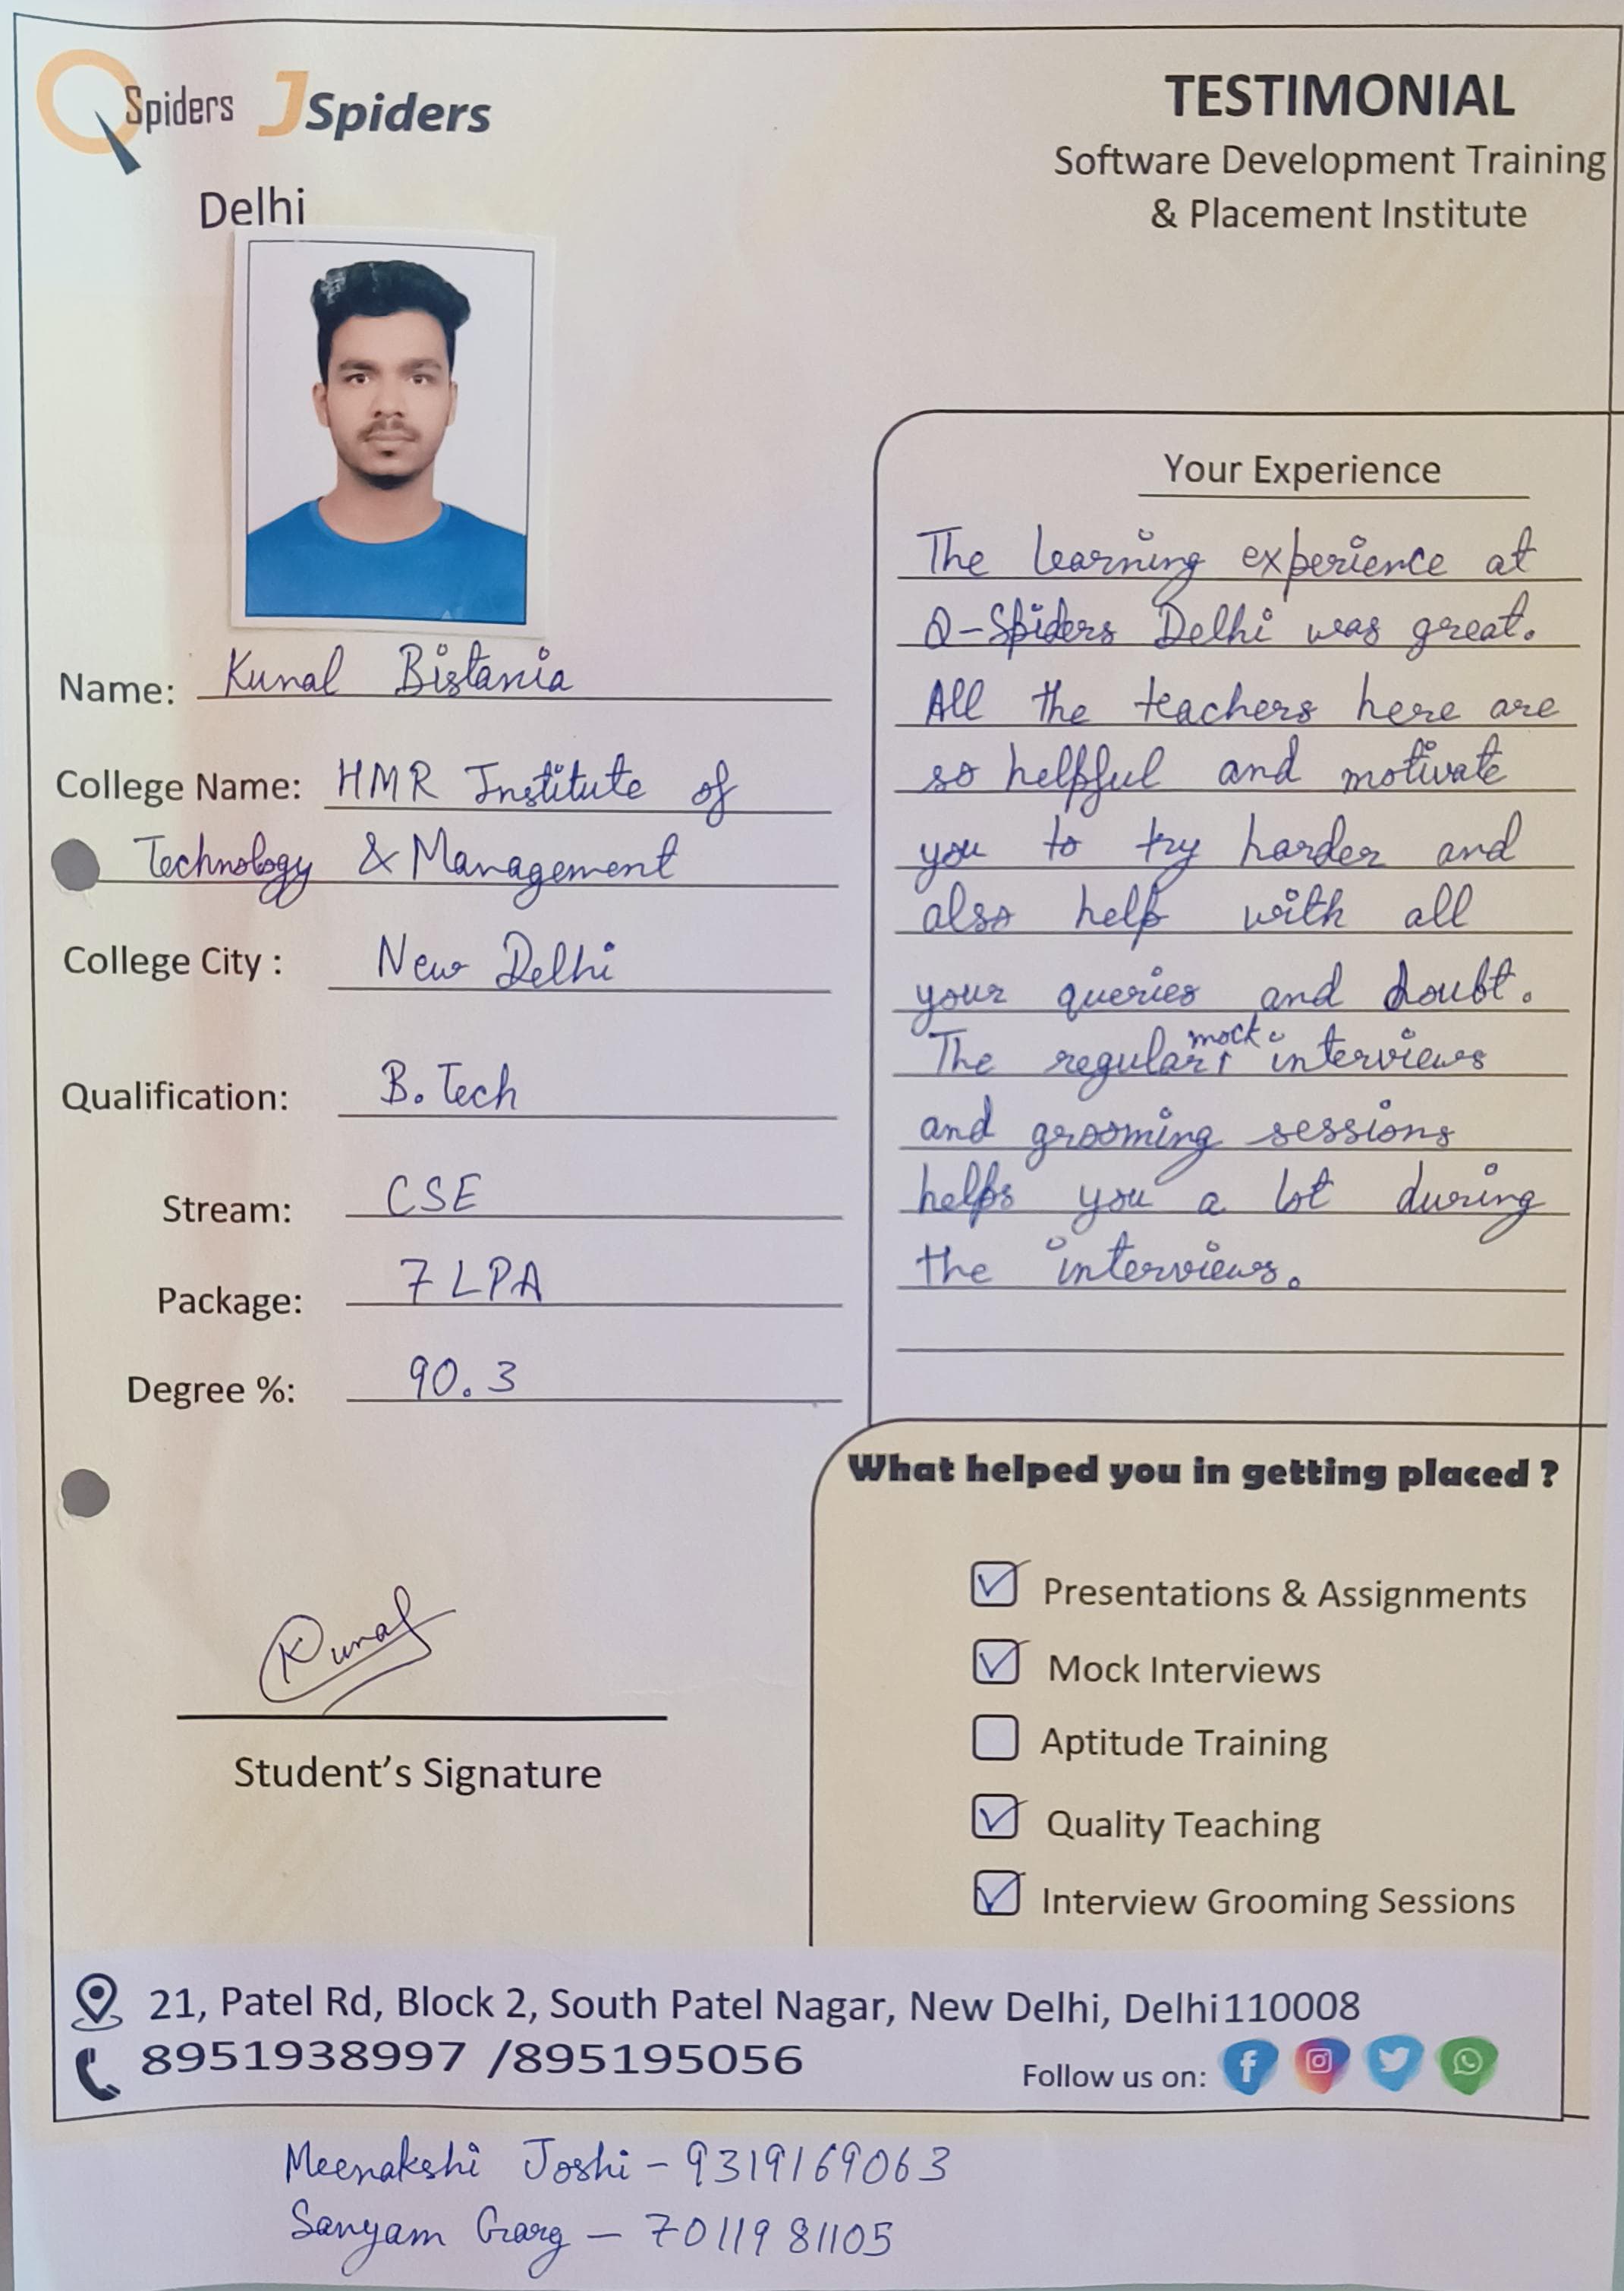 QSpiders JSpiders
Delhi
TESTIMONIAL
Software Development Training
& Placement Institute
Name: Kunal Bistania
College Name: HMR Institute of
Technology & Management
College City : New Delhi
Qualification: B.Tech
Stream: CSE
Package: 7 LPA
Degree %: 90.3
Kunal
Student's Signature
Your Experience
The learning experience at
Q-Spiders Delhi was great.
All the teachers here are
so helpful and motivate
you to try harder and
also help with all
your queries and doubt.
The regular mock interviews
and grooming sessions
helps you a lot during
the interviews.
What helped you in getting placed ?
Presentations & Assignments
Mock Interviews
Aptitude Training
Quality Teaching
Interview Grooming Sessions
21, Patel Rd, Block 2, South Patel Nagar, New Delhi, Delhi110008
8951938997 /895195056
Follow us on:
Meenakshi Joshi - 9319169063
Sanyam Garg - 7011981105